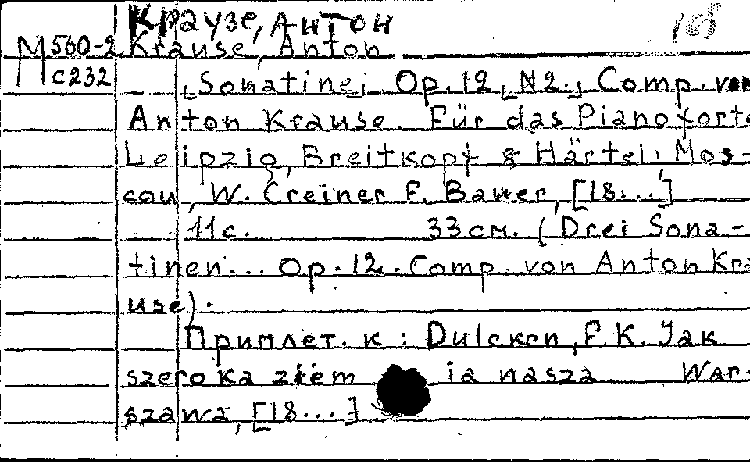 Краузе, Антон
М 560-2 Krause, Anton
с232 [Sonatine] Op.12 [N2.] Comp. von
Anton Krause. Für das Pianoforte
Leipzig, Breitkopf & Härtel; Mos-
cou, W. Creiner F. Bauer, [18...]
11с. 33см. (Drei Sona-
tinen... Op.12. Comp. von Anton Kra
use).
Приплет. к: Dulcken, F.K. Jak
szeroka ziem ia nasza War-
szawa, [18...]